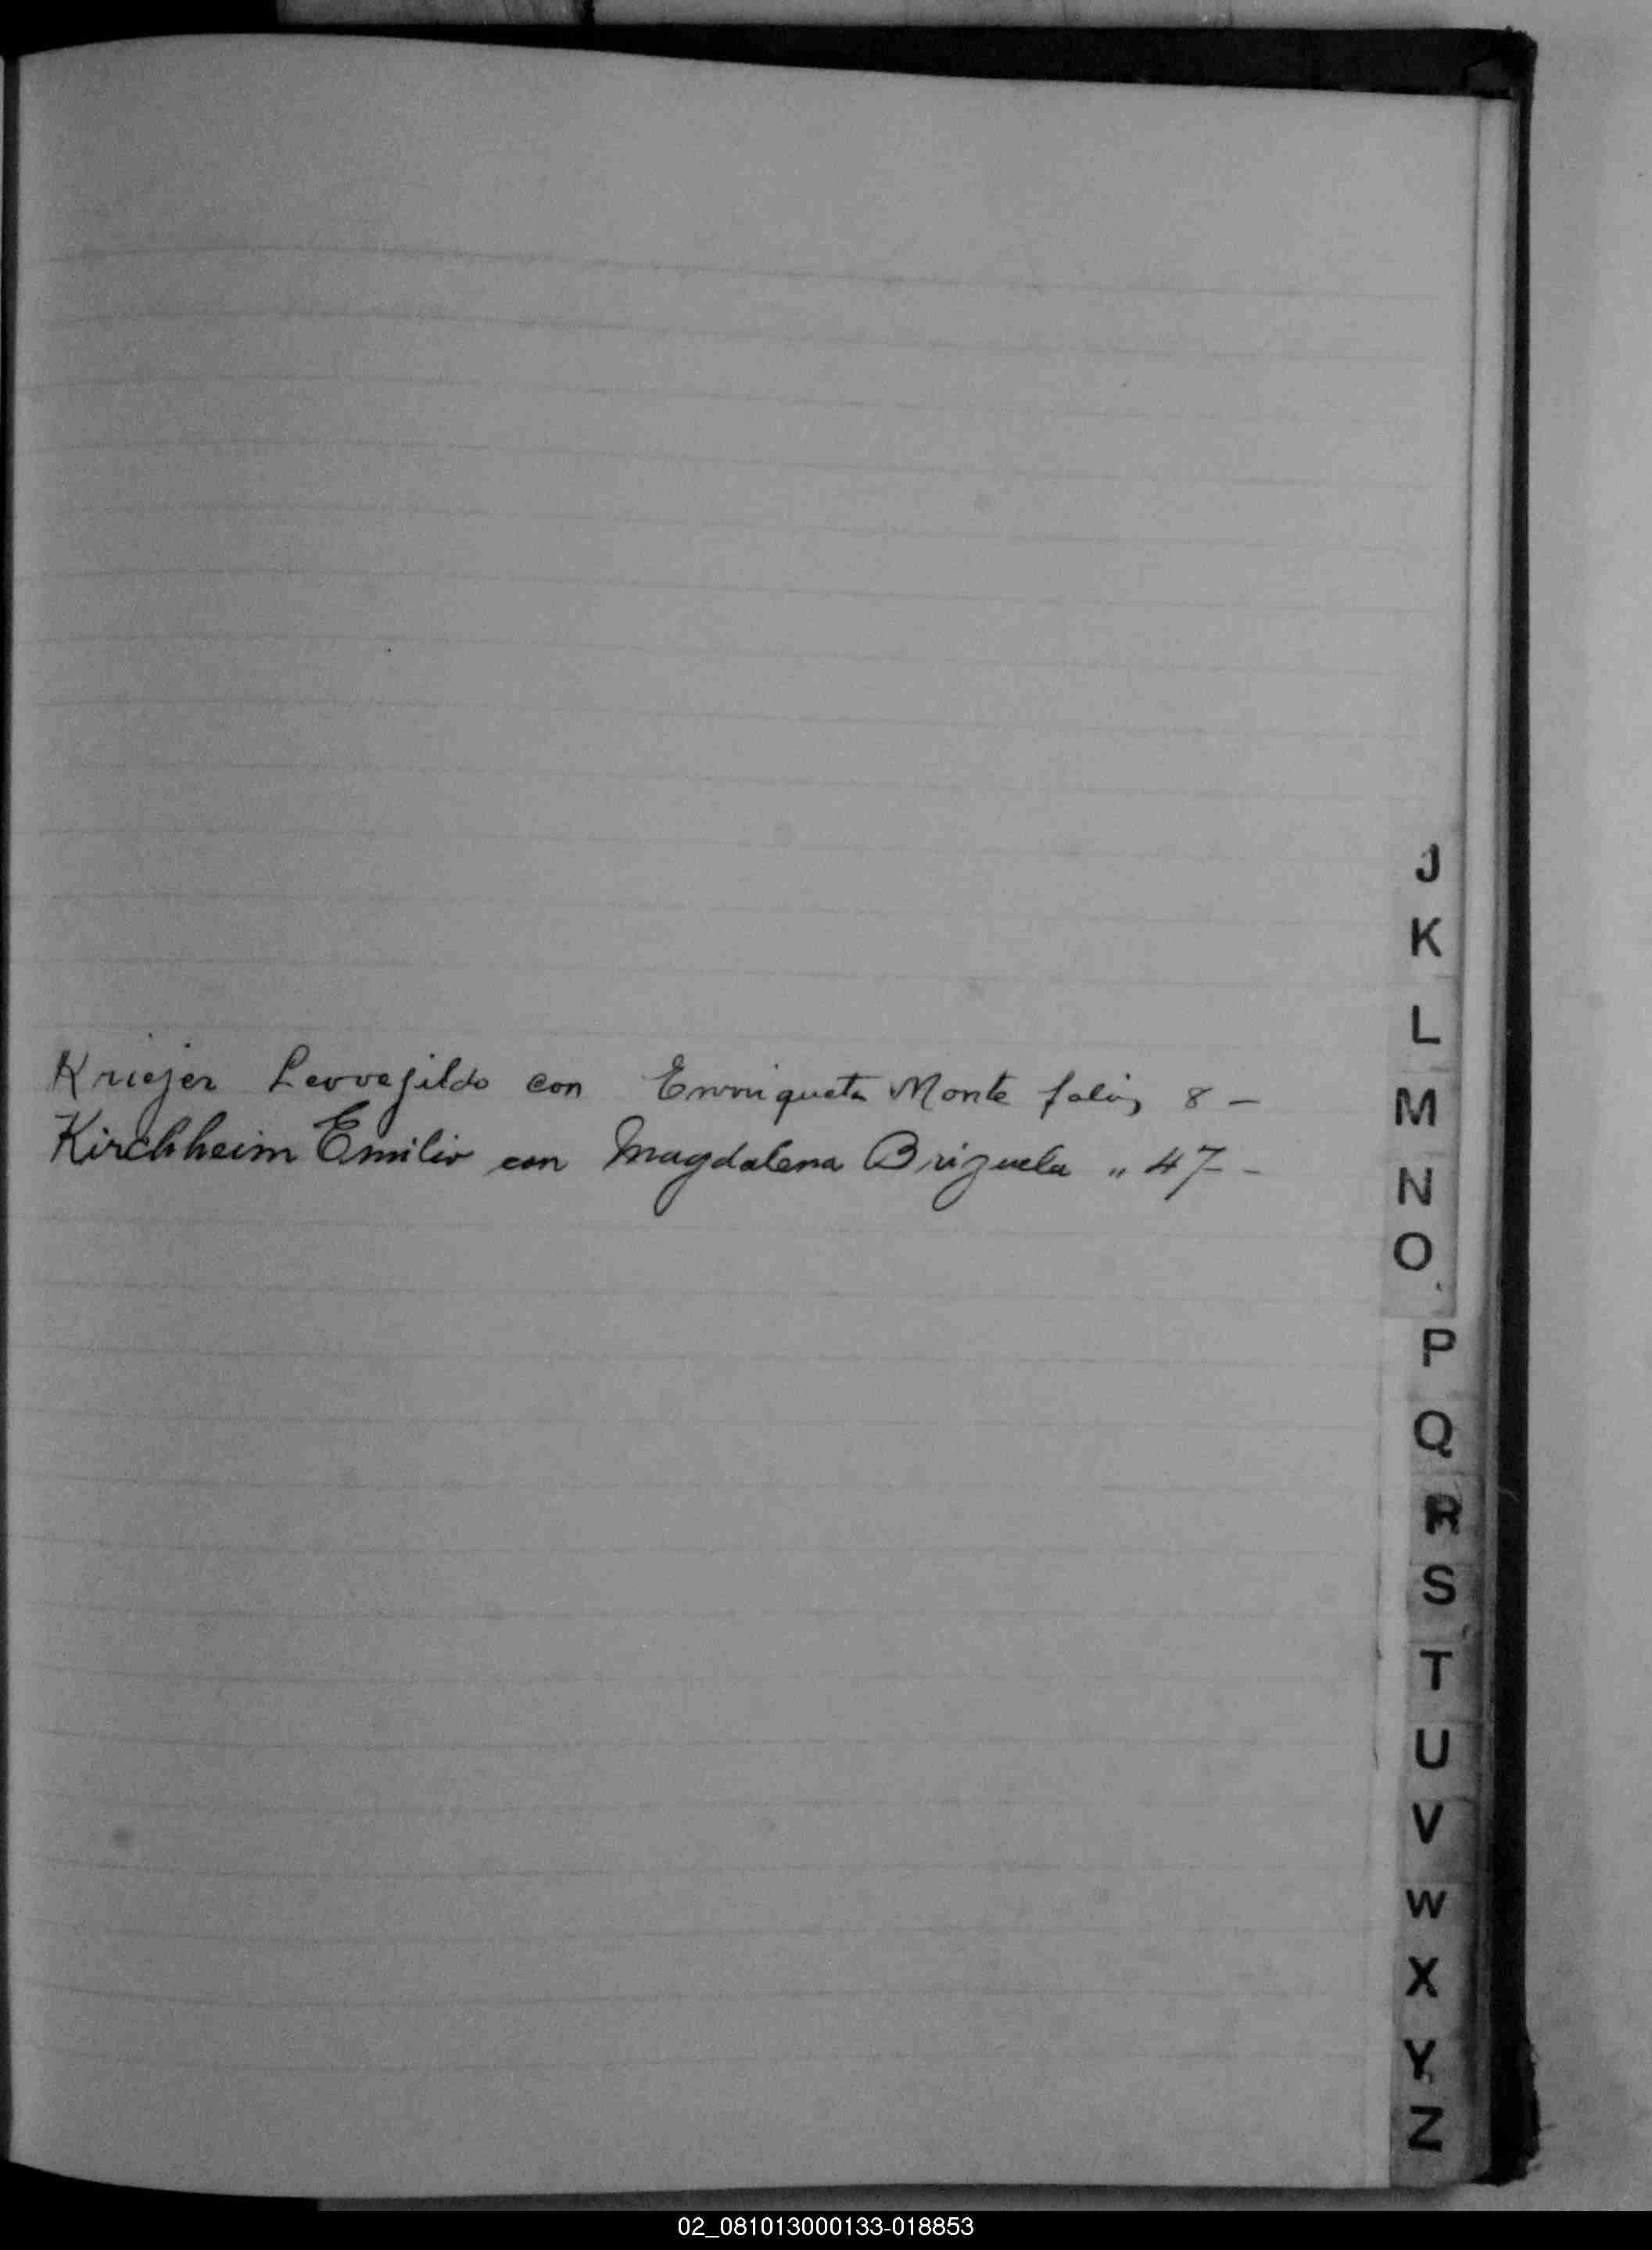 Kriejer Leovejildo con Enriqueta Monte folio 8 -
Kirchheim Emilio con Magdalena Brizuela " 47 -
J
K
L
M
N
O
P
Q
R
S
T
U
V
W
X
Y
Z
02_081013000133-018853